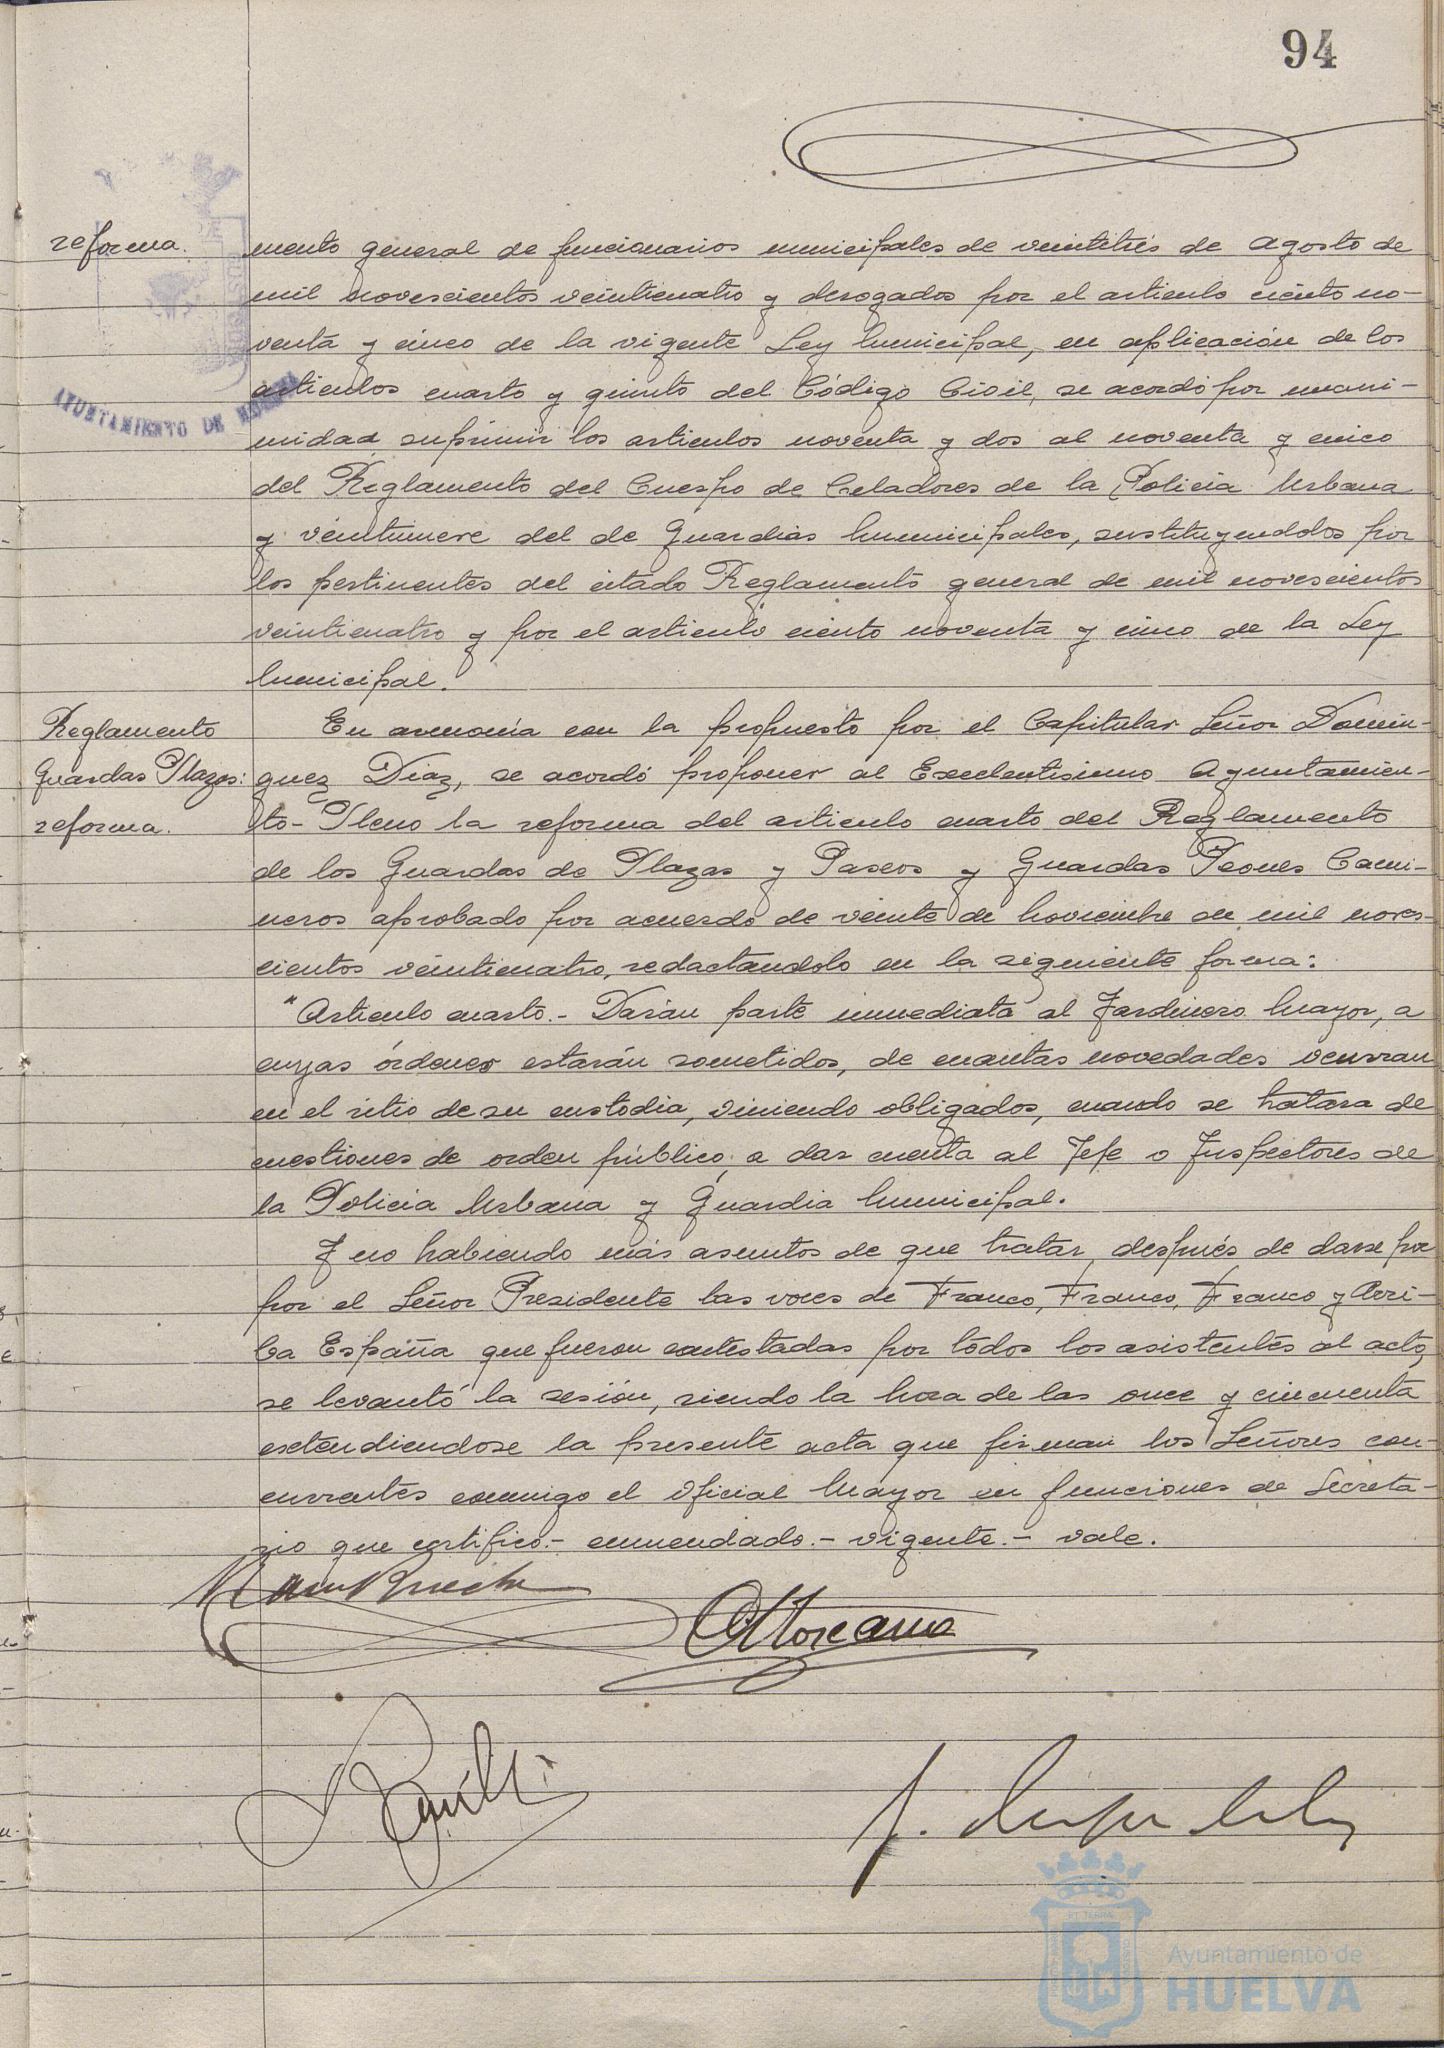 94
reforma.
mento general de funcionarios municipales de veintitrés de Agosto de
mil novescientos veinticuatro y derogados por el articulo ciento no-
venta y cinco de la vigente Ley Municipal, en aplicación de los
articulos cuarto y quinto del Código Civil, se acordó por unani-
midad suprimir los articulos noventa y dos al noventa y cinco
del Reglamento del Cuerpo de Celadores de la Policia Urbana
y veintinueve del de Guardias Municipales, sustituyendolos por
los pertinentes del citado Reglamento general de mil novescientos
veinticuatro y por el articulo ciento noventa y cinco de la Ley
Municipal.
Reglamento
Guardas Plazas:
reforma.
En armonía con la propuesto por el Capitular Señor Domin-
guez Diaz, se acordó proponer al Excelentisimo Ayuntamien-
to-Pleno la reforma del articulo cuarto del Reglamento
de los Guardas de Plazas y Paseos y Guardas Peones Cami-
neros aprobado por acuerdo de veinte de Noviembre de mil noves-
cientos veinticuatro, redactandolo en la siguiente forma:
"Articulo cuarto.- Darán parte inmediata al Jardinero Mayor, a
cuyas órdenes estarán sometidos, de cuantas novedades ocurran
en el sitio de su custodia, viniendo obligados, cuando se tratara de
cuestiones de orden público, a dar cuenta al Jefe o Inspectores de
la Policia Urbana y Guardia Municipal.
Y no habiendo más asuntos de que tratar, después de darse por
por el Señor Presidente las voces de Franco, Franco, Franco y Arri-
ba España que fueron contestadas por todos los asistentes al acto,
se levantó la sesión, siendo la hora de las once y cincuenta
extendiendose la presente acta que firman los Señores con-
currentes conmigo el Oficial Mayor en funciones de Secreta-
rio que certifico.- enmendado.- vigente.- vale.
AYUNTAMIENTO DE HUELVA
Ayuntamiento de
HUELVA